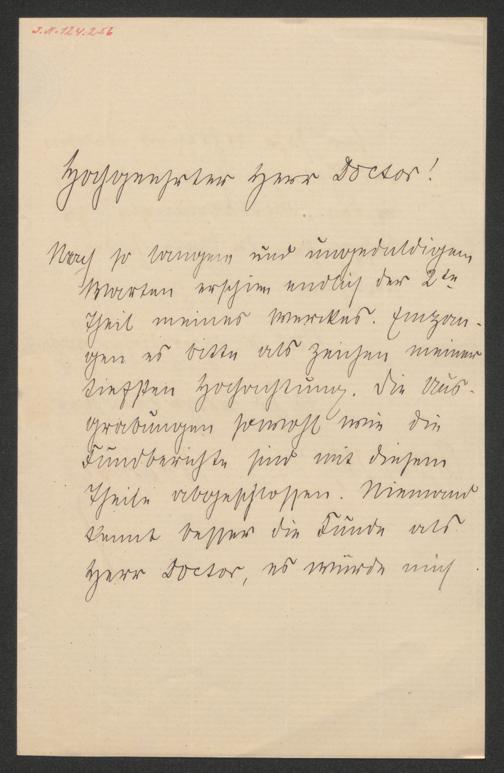 J.N. 124.256
Hochgeehrter Herr Doctor!
Nach so langem und ungeduldigem
Warten erschien endlich der 2te
Theil meines Werkes. Empfan-
gen es bitte als Zeichen meiner
tiefsten Hochachtung. Die Aus-
grabungen sowohl wie die
Fundberichte sind mit diesem
Theile abgeschlossen. Niemand
kennt besser die Funde als
Herr Doctor, es würde mich